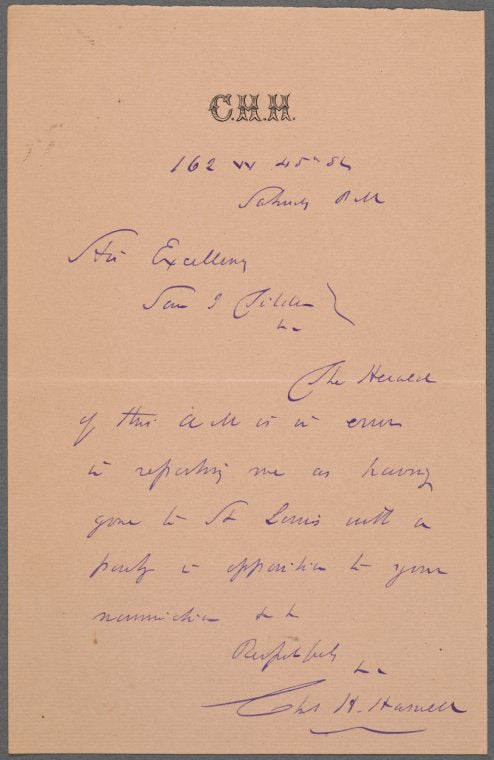 C.H.H.
162 W 45th St
Saturday P.M
His Excellency
Sam J Tilden
&c
The Herald
of this A M is in error
in reporting me as having
gone to St Louis with a
party in opposition to your
nomination & &
Respectfully
&c
Chs H. Haswell